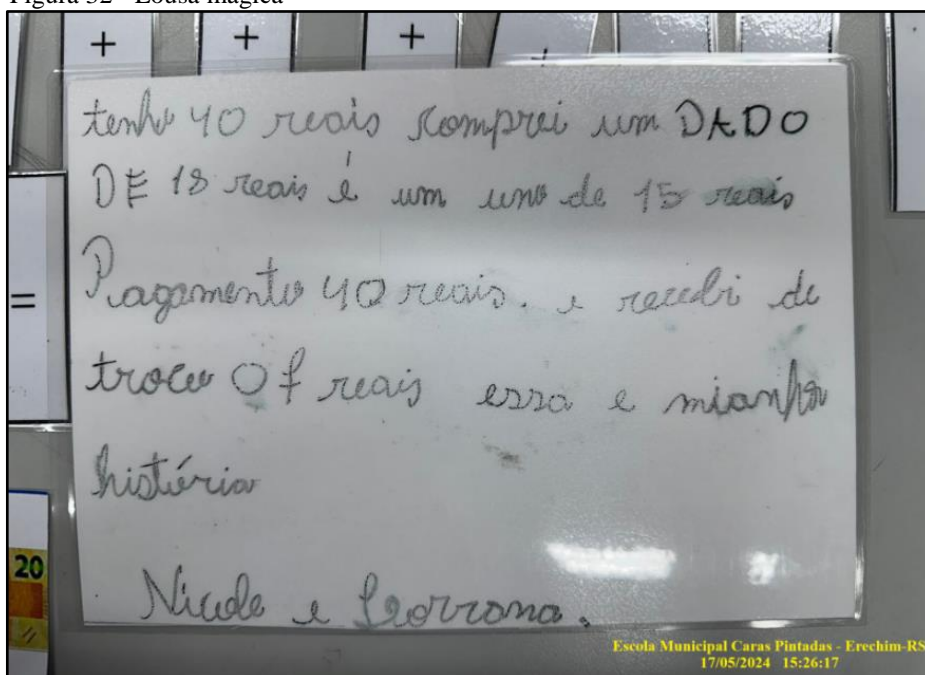 Figura 32 - Lousa mágica
+ + +
tenho 40 reais comprei um DADO
DE 18 reais é um uno de 15 reais
=
Pagamento 40 reais. e recebi de
troco 07 reais essa e mianha
história
20
Nicole e
Escola Municipal Caras Pintadas - Erechim-RS
17/05/2024 15:26:17